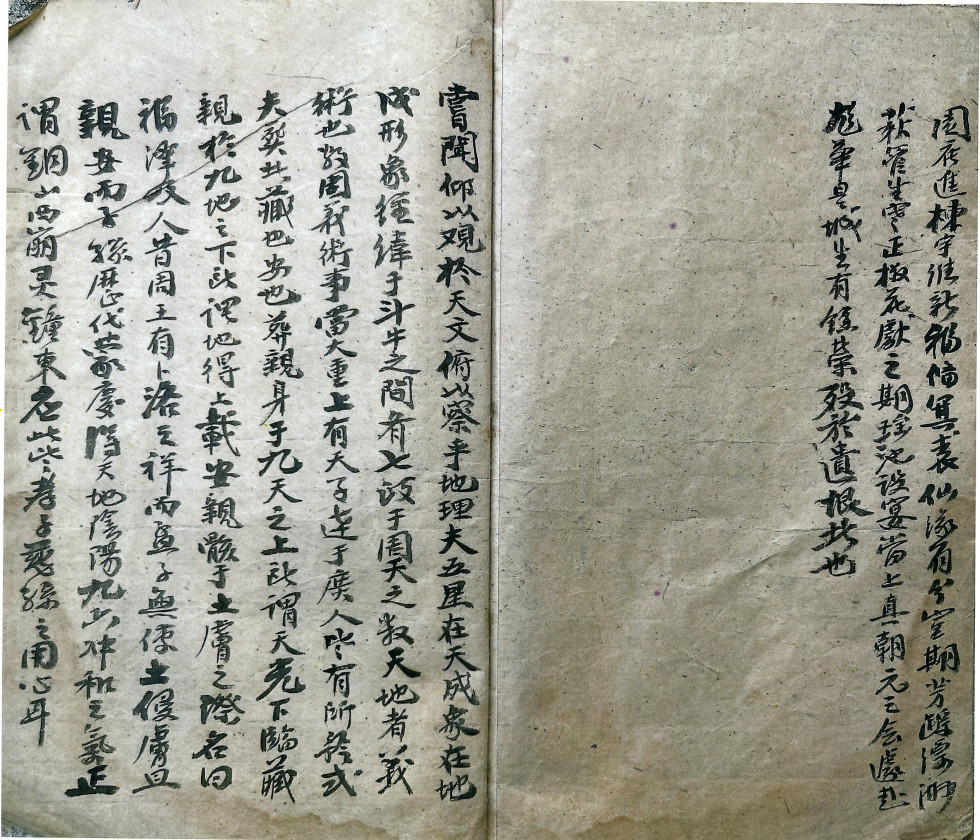 進棟宇維新 仙 有 期芳
管生 正 花獻之期瑤池設宴當上真朝元之会 赴
華 城 生有餘榮殁於遺恨此也
嘗聞仰以观於天文俯以察乎地理夫五星在天成象在地
成形象經緯于斗牛之間者七政于周天之数天地者義
術也 周義術事當大重上有天子達于庶人皆有所 式
夫 葬此藏也安也葬親身于九天之上此謂天光下臨藏
親於九地之下此謂地得上載安親骸于土膚之際名曰
福澤及人昔周王有卜洛之祥而孟子無使土侵膚且
親安而子孫歷代 慶得天地陰陽九六冲和之氣正
謂銅山西崩灵鐘東应此些孝子慈孫之用心耳